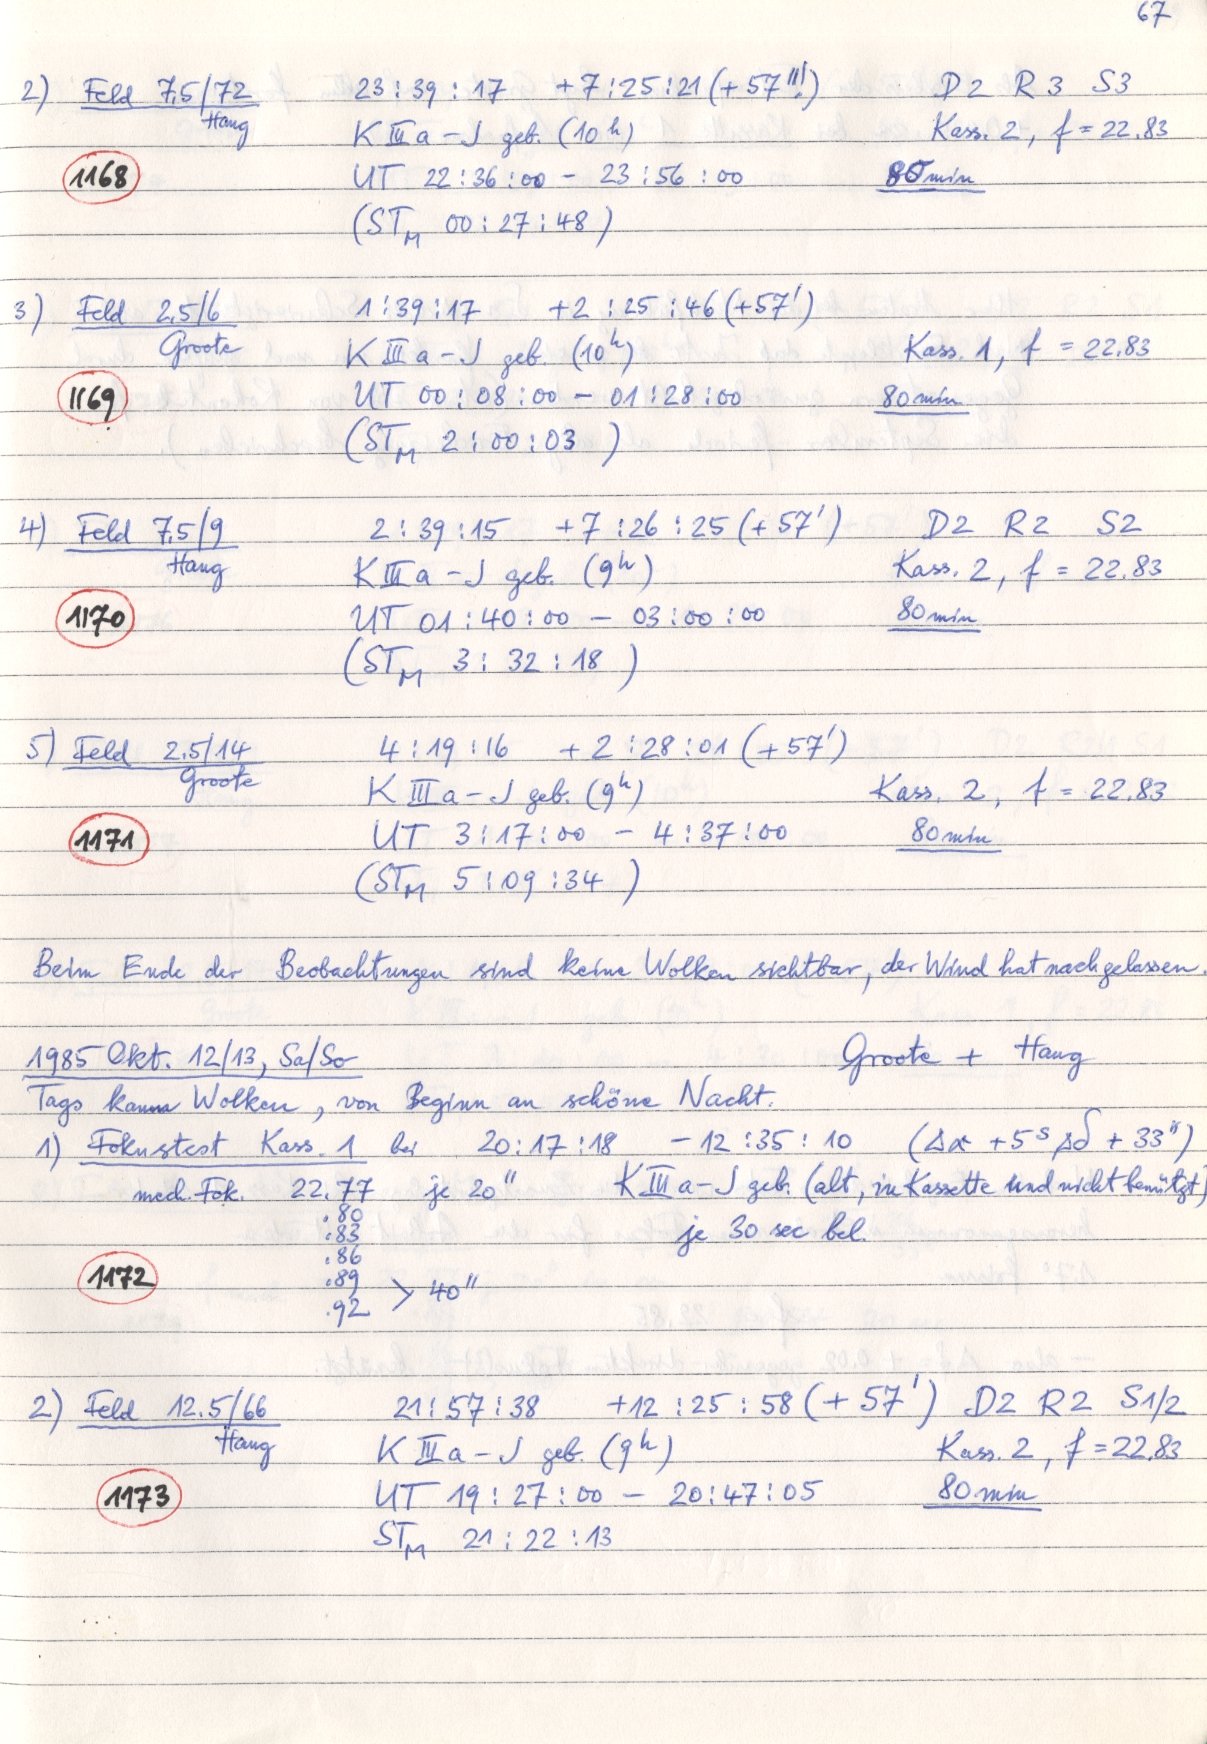 67
2) Feld 7,5/72 23:39:17 +7:25:21 (+57"!) D2 R3 S3
Haug K IIIa-J geb. (10h) Kass. 2, f = 22.83
1168 UT 22:36:00 - 23:56:00 80 min
(STM 00:27:48)
3) Feld 2,5/6 1:39:17 +2:25:46 (+57')
Groote K IIIa-J geb. (10h) Kass. 1, f = 22.83
1169 UT 00:08:00 - 01:28:00 80 min
(STM 2:00:03)
4) Feld 7,5/9 2:39:15 +7:26:25 (+57') D2 R2 S2
Haug K IIIa-J geb. (9h) Kass. 2, f = 22.83
1170 UT 01:40:00 - 03:00:00 80 min
(STM 3:32:18)
5) Feld 2,5/14 4:19:16 +2:28:01 (+57')
Groote K IIIa-J geb. (9h) Kass. 2, f = 22.83
1171 UT 3:17:00 - 4:37:00 80 min
(STM 5:09:34)
Beim Ende der Beobachtungen sind keine Wolken sichtbar, der Wind hat nachgelassen.
1985 Okt. 12/13, Sa/So Groote + Haug
Tags kaum Wolken, von Beginn an schöne Nacht.
1) Fokustest Kass. 1 bei 20:17:18 -12:35:10 (Δα +5s Δδ +33")
mech. Fok. 22.77 je 20" K IIIa-J geb. (alt, in Kassette und nicht benützt)
.80
.83 je 30 sec bel.
.86
1172 .89
.92 > 40"
2) Feld 12.5/66 21:57:38 +12:25:58 (+57') D2 R2 S1/2
Haug K IIIa-J geb. (9h) Kass. 2, f = 22.83
1173 UT 19:27:00 - 20:47:05 80 min
STM 21:22:13